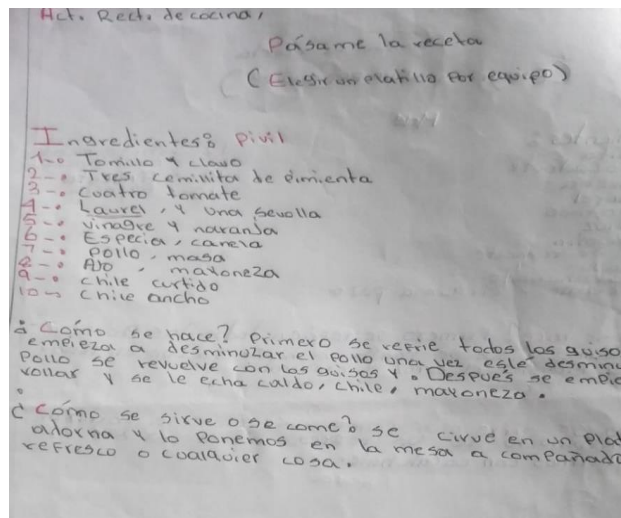 Act. Rect. de cocina,
Pásame la receta
(Elegir un platillo por equipo)
Ingredientes: Pivil
1-. Tomillo y clavo
2-. Tres cemillita de pimienta
3-. Cuatro tomate
4-. Laurel, y una sevolla
5-. Vinagre y naranja
6-. Especia, canela
7-. Pollo, masa
8-. Ajo, mayoneza
9-. Chile curtido
10-. Chile ancho
¿Cómo se hace? Primero se refrie todos los guiso
empieza a desminuzar el pollo una vez esté desminu
Pollo se revuelve con los guisos y. Después se empie
rollar y se le echa caldo, chile, mayoneza.
¿Cómo se sirve o se come? se cirve en un plat
adorna y lo ponemos en la mesa a compañado
refresco o cualquier cosa.